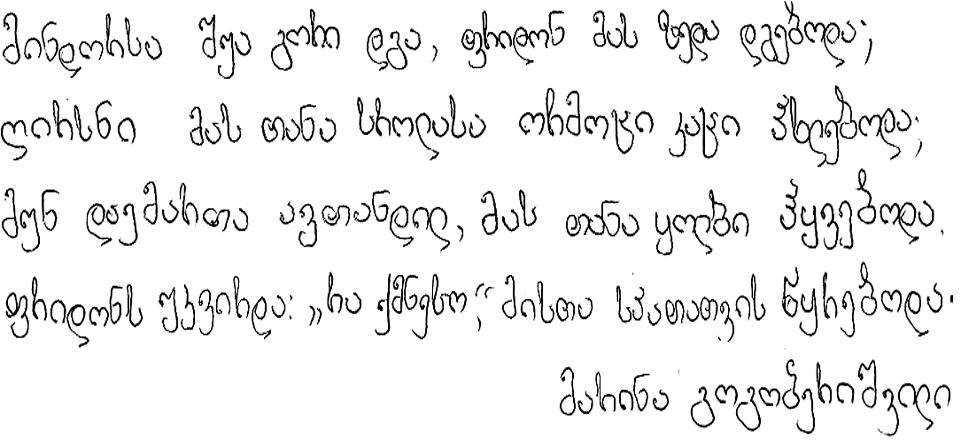 მინდორსა შუა გორი დგა, ფრიდონ მას ზედა დგებოდა;
ღირსნი მას თანა სროლასა ორმოცი კაცი ჰხლებოდა;
მუნ დაემართა ავთანდილ, მას თანა ყოლბი ჰყვებოდა.
ფრიდონს უკვირდა: „რა ქმნესო“, მისთა სპათათვის წყრებოდა.
მარინა გოგობერიშვილი